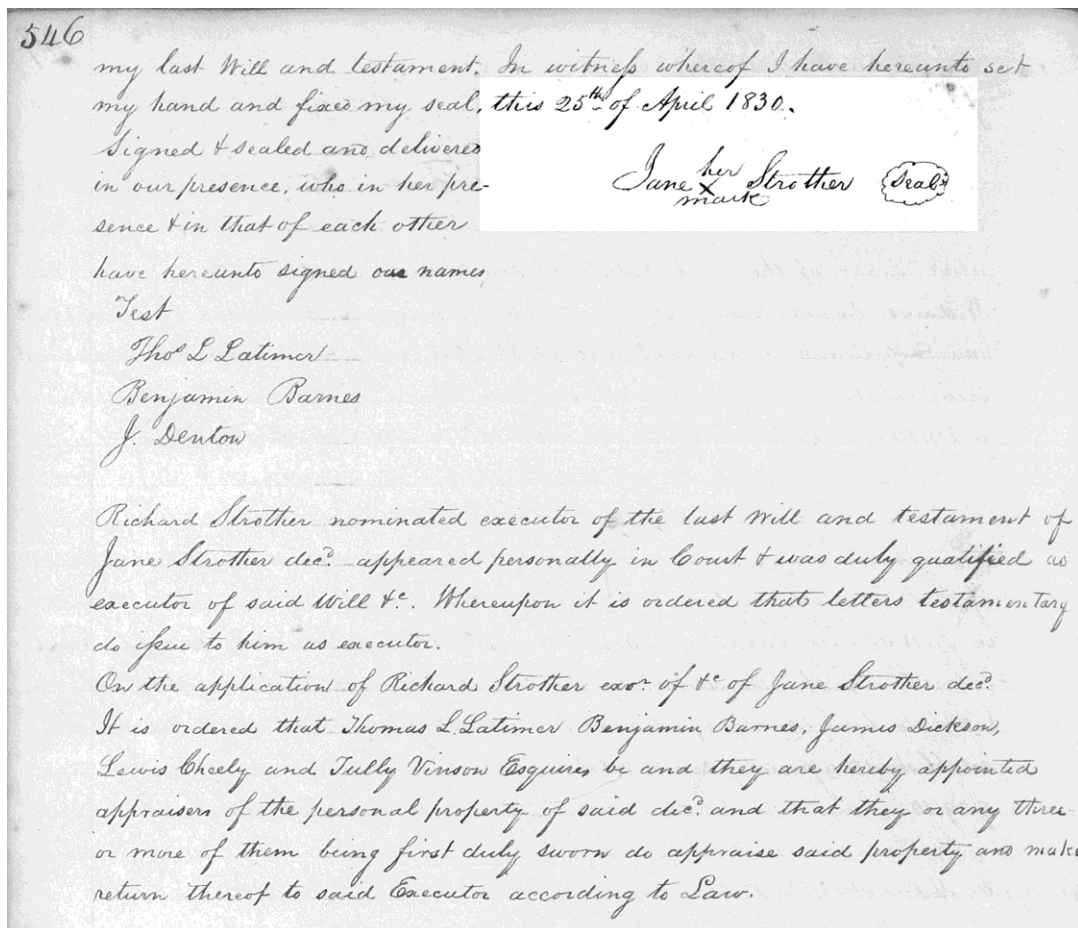 546
my last Will and testament. In witness whereof I have hereunto set
my hand and fixed my seal, this 25th of April 1830.
Signed & sealed and delivered
in our presence, who in her pre-
sence & in that of each other
have hereunto signed our names
Jane her Strother Seal
X
mark
Test
Thos L Latimer
Benjamin Barnes
J. Denton
Richard Strother nominated executor of the last Will and testament of
Jane Strother decd. appeared personally in Court & was duly qualified as
executor of said Will &c. Whereupon it is ordered that letters testamentary
do issue to him as executor.
On the application of Richard Strother exor. of &c of Jane Strother decd.
It is ordered that Thomas L. Latimer Benjamin Barnes, James Dickson,
Lewis Cheely and Tully Vinson Esquires be and they are hereby appointed
appraisers of the personal property of said decd. and that they or any three
or more of them being first duly sworn do appraise said property and make
return thereof to said Executor according to Law.